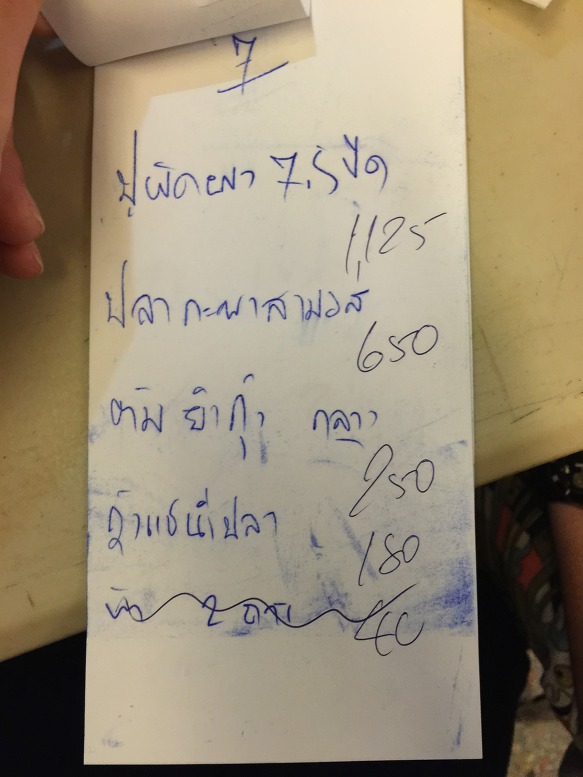 7
ปูผัดผง 7.5 ขีด
1,125
ปลากะพงสามรส
650
ต้มยำกุ้ง กลาง
250
กุ้งแช่น้ำปลา
180
2
40